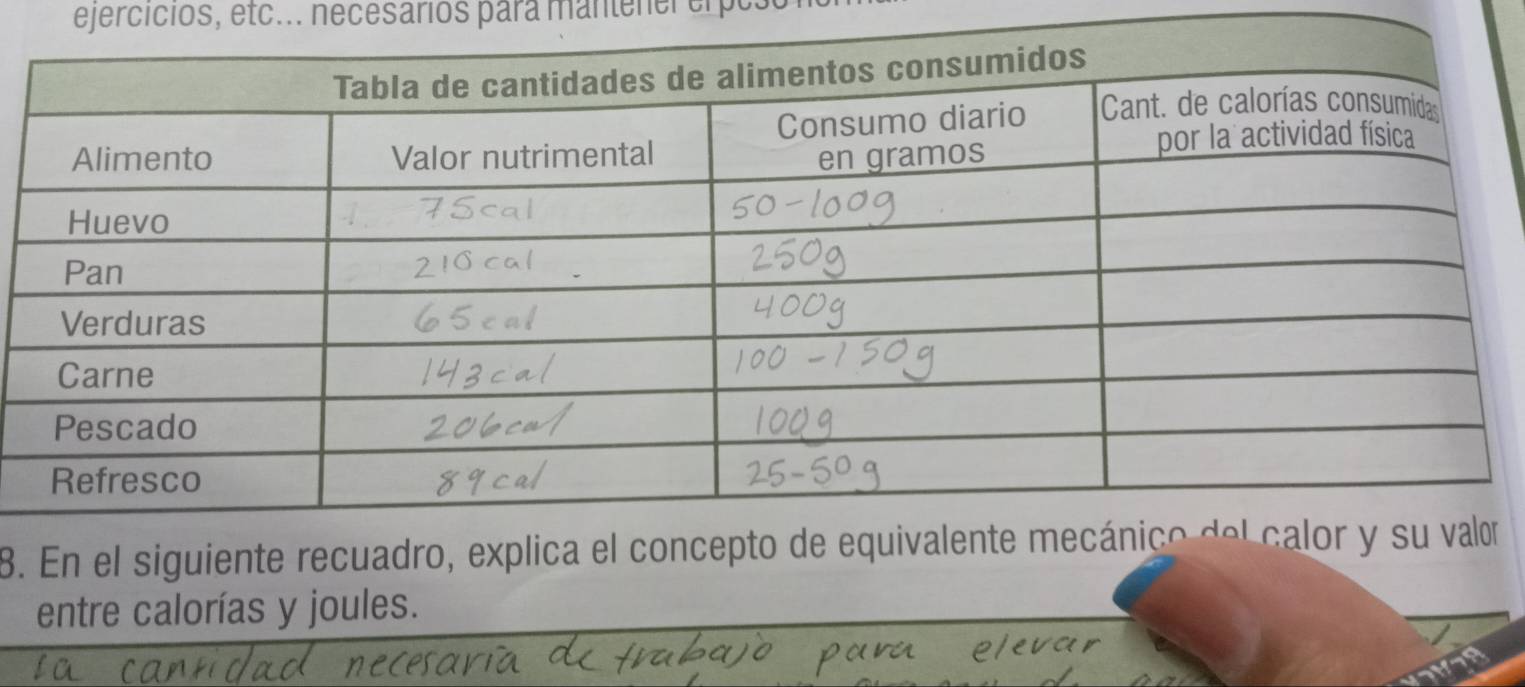 ejercicios, etc... necesarios para mantener el
Tabla de cantidades de alimentos consumidos
Alimento Valor nutrimental Consumo diario en gramos Cant. de calorías consumidas por la actividad física
Huevo 75cal 50-100g
Pan 210cal 250g
Verduras 65cal 400g
Carne 143cal 100-150g
Pescado 206cal 100g
Refresco 89cal 25-50g
8. En el siguiente recuadro, explica el concepto de equivalente mecánico del calor y su valor
entre calorías y joules.
la cantidad necesaria de trabajo para elevar